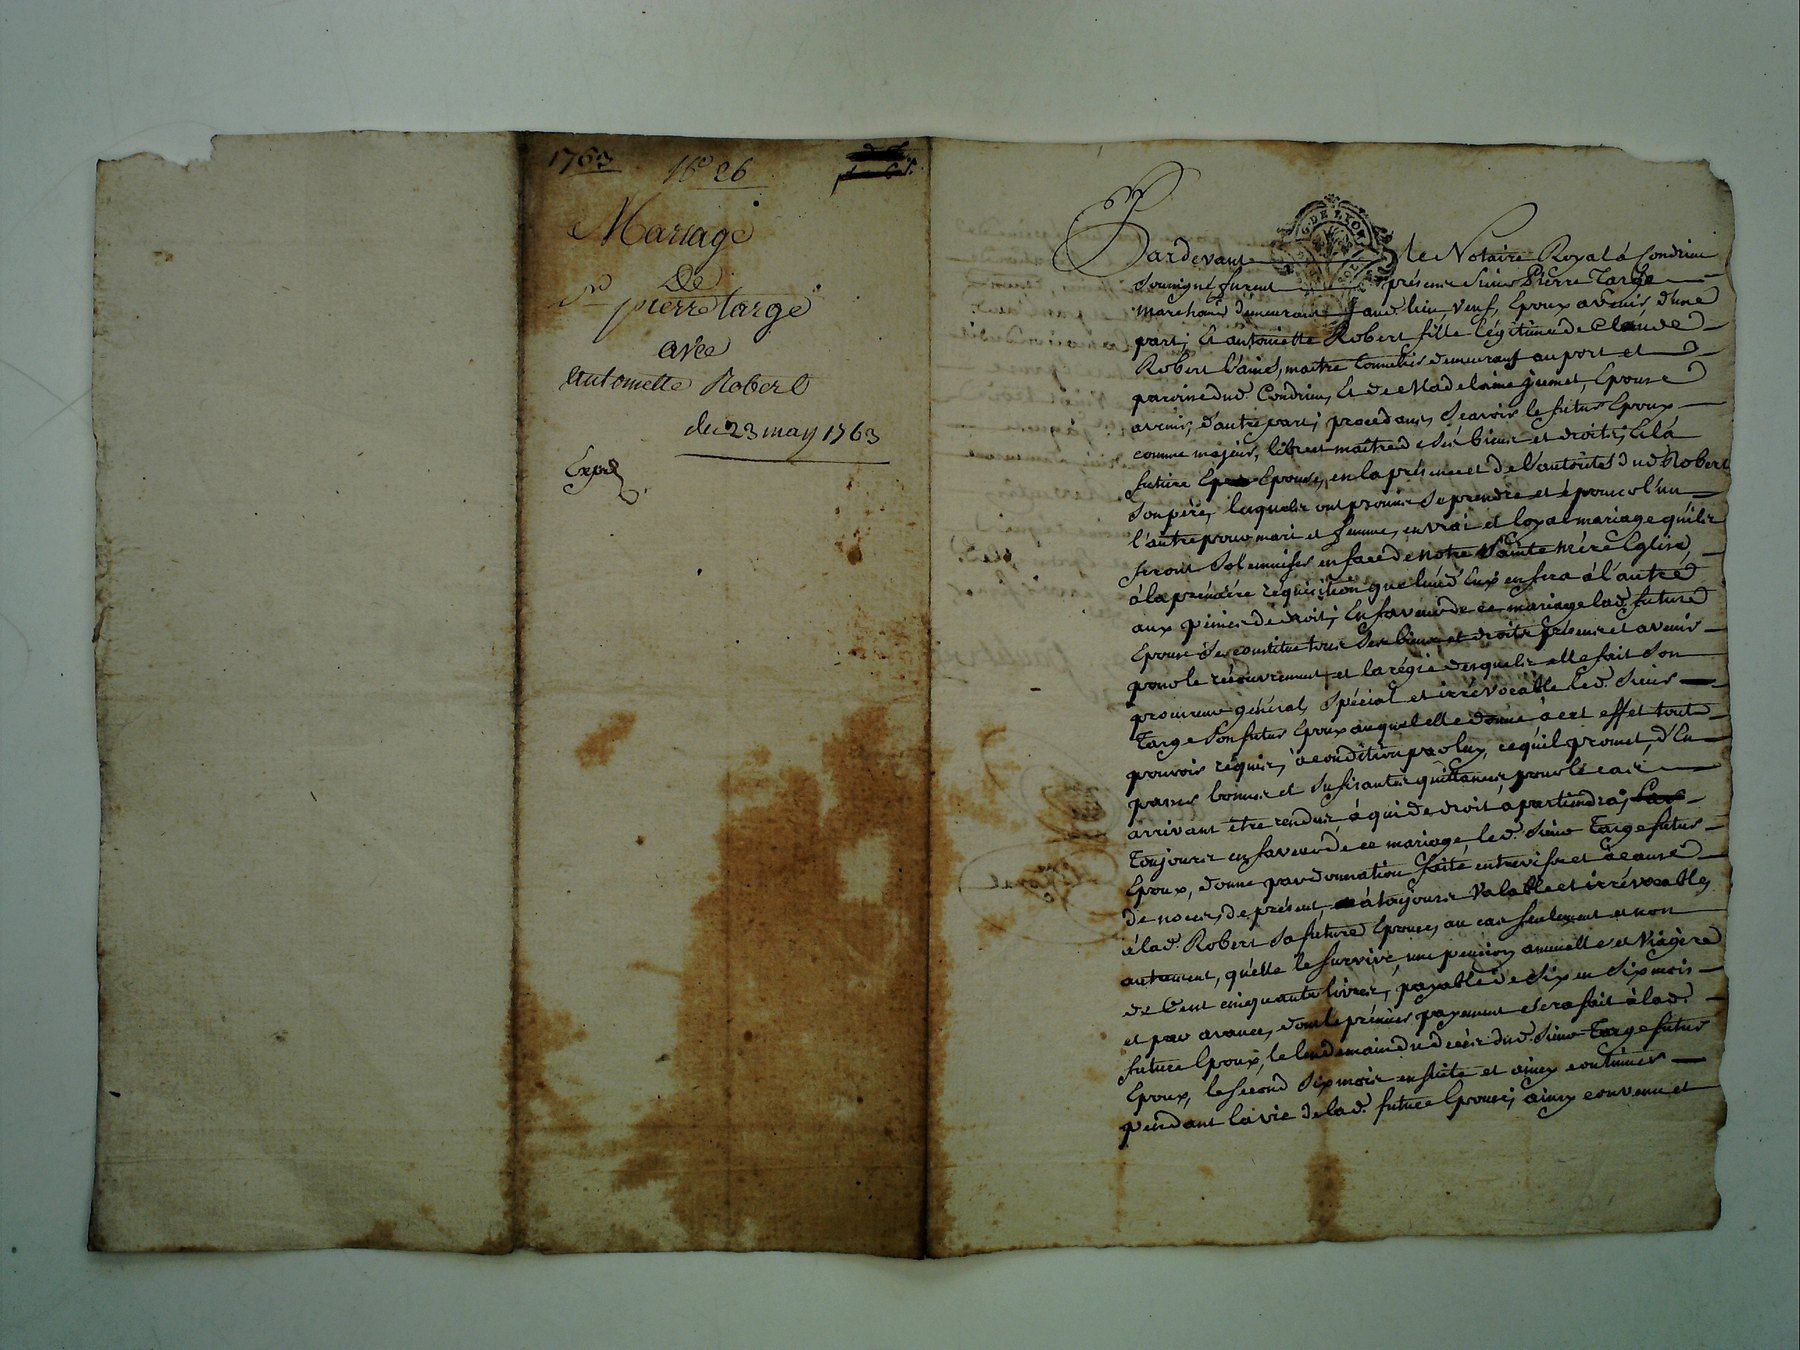 1763
N.º 26
Mariage
De
Sr. pierre targe
avec
antoinette Robert
du 23 may 1763
Exped
G. DE LYON
Pardevant le Notaire Royal à Condrieu
soussigné furent présens sieur Pierre Targe
marchand demeurant aud. lieu, veuf, Epoux avenir, d'une
part; Et antoinette Robert fille légitime de Claude
Robert l'ainé, maitre tonnelier demeurant au port et
paroisse dud. Condrieu, Et de Madelaine Epouse
avenir, d'autre part; procedans, scavoir le futur Epoux
comme majeur, libre et maitre de ses biens et droits, Et la
future Epouse, en la présence et de l'autorité dud. Robert
son père, lesquels ont promis se prendre et épouser l'un
l'autre pour mari et femme, en vrai et loyal mariage qu'ils
feront solemniser en face de notre Sainte mère Eglise,
à la première réquisition que l'un d'Eux en fera à l'autre
aux peines de droit; En faveur de ce mariage lad. future
Epouse se constitue tous ses biens et droits présens et avenir
pour le recouvrement et la régie desquels elle fait son
procureur général, spécial et irrévocable led. sieur
Targe son futur Epoux auquel elle donne à cet effet tout
pouvoir réquis, à condition par luy, ce qu'il promet, d'En
passer bonnes et sufisantes quittances pour le cas
arrivant être rendus à qui de droit apartiendra;
Toujours en faveur de ce mariage, led. sieur Targe futur
Epoux, donne par donnation faite entre vifs et à cause
de noces, de présent, à toujours valable et irrévocable,
à lad. Robert sa future Epouse, au cas seulement et non
autrement, qu'elle le survive, une pension annuelle et viagère
de Cent cinquante livres, payable de six en six mois
et par avance, dont le prémier payement sera fait à lad.
future Epoux, le lendemain du décès dud. sieur Targe futur
Epoux, le second six mois ensuite et ainsy continuer
pendant la vie de lad. future Epouse; ainsy convenu et